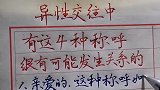 异性交往中
有这4种称呼
很有可能发生关系的
1、亲爱的、这种称呼如